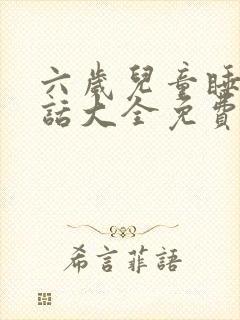 六歲兒童睡
話大全免費
希言菲語